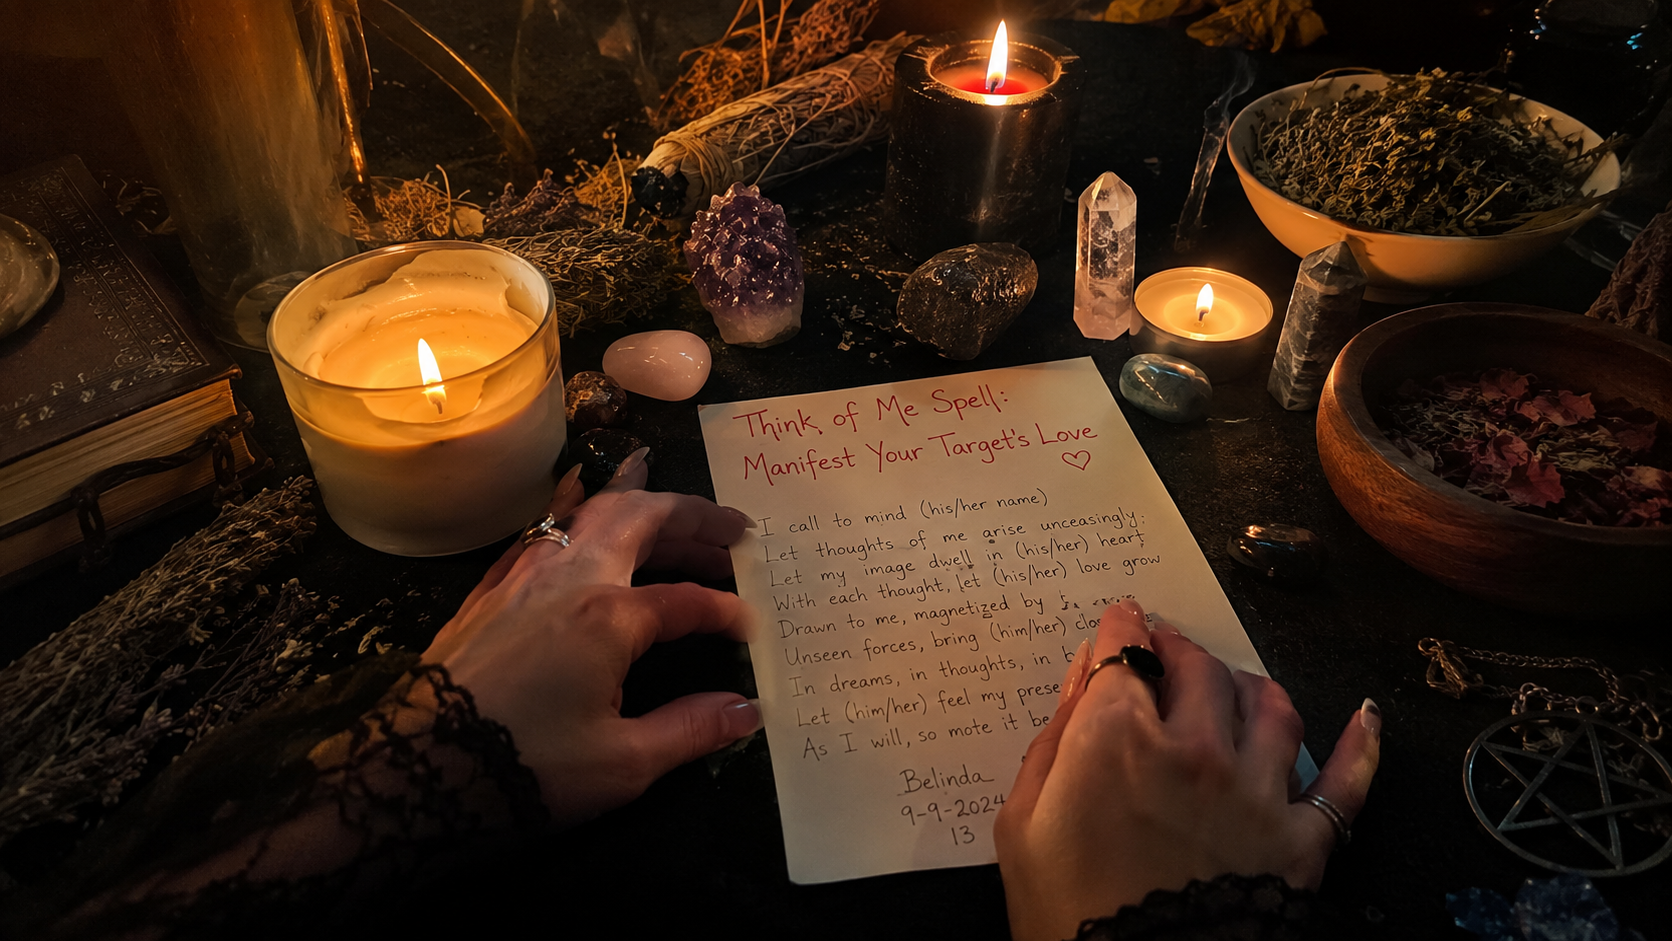 Think of Me Spell:
Manifest Your Target's Love
I call to mind (his/her name)
Let thoughts of me arise unceasingly:
Let my image dwell in (his/her) heart
With each thought, let (his/her) love grow
Drawn to me, magnetized by
Unseen forces, bring (him/her)
In dreams, in thoughts, in
Let (him/her) feel my
As I will, so mote it be
Belinda
9-9-2024
13